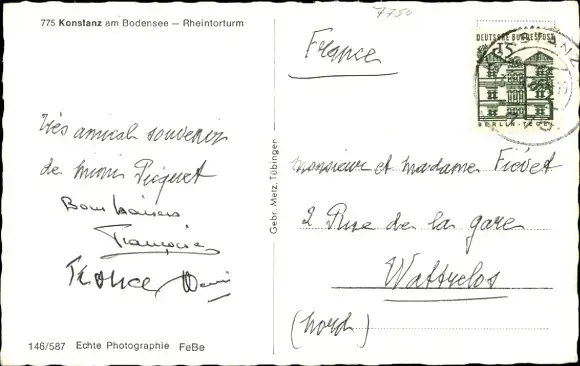 775 Konstanz am Bodensee – Rheintorturm
7750
France
DEUTSCHE BUNDESPOST
BERLIN-TEGEL
Très amical souvenir
de
Bons baisers
Françoise
France
Gebr. Metz, Tübingen
Monsieur et Madame Fiévet
2 Rue de la gare
Wattrelos
(Nord)
146/587 Echte Photographie FeBe